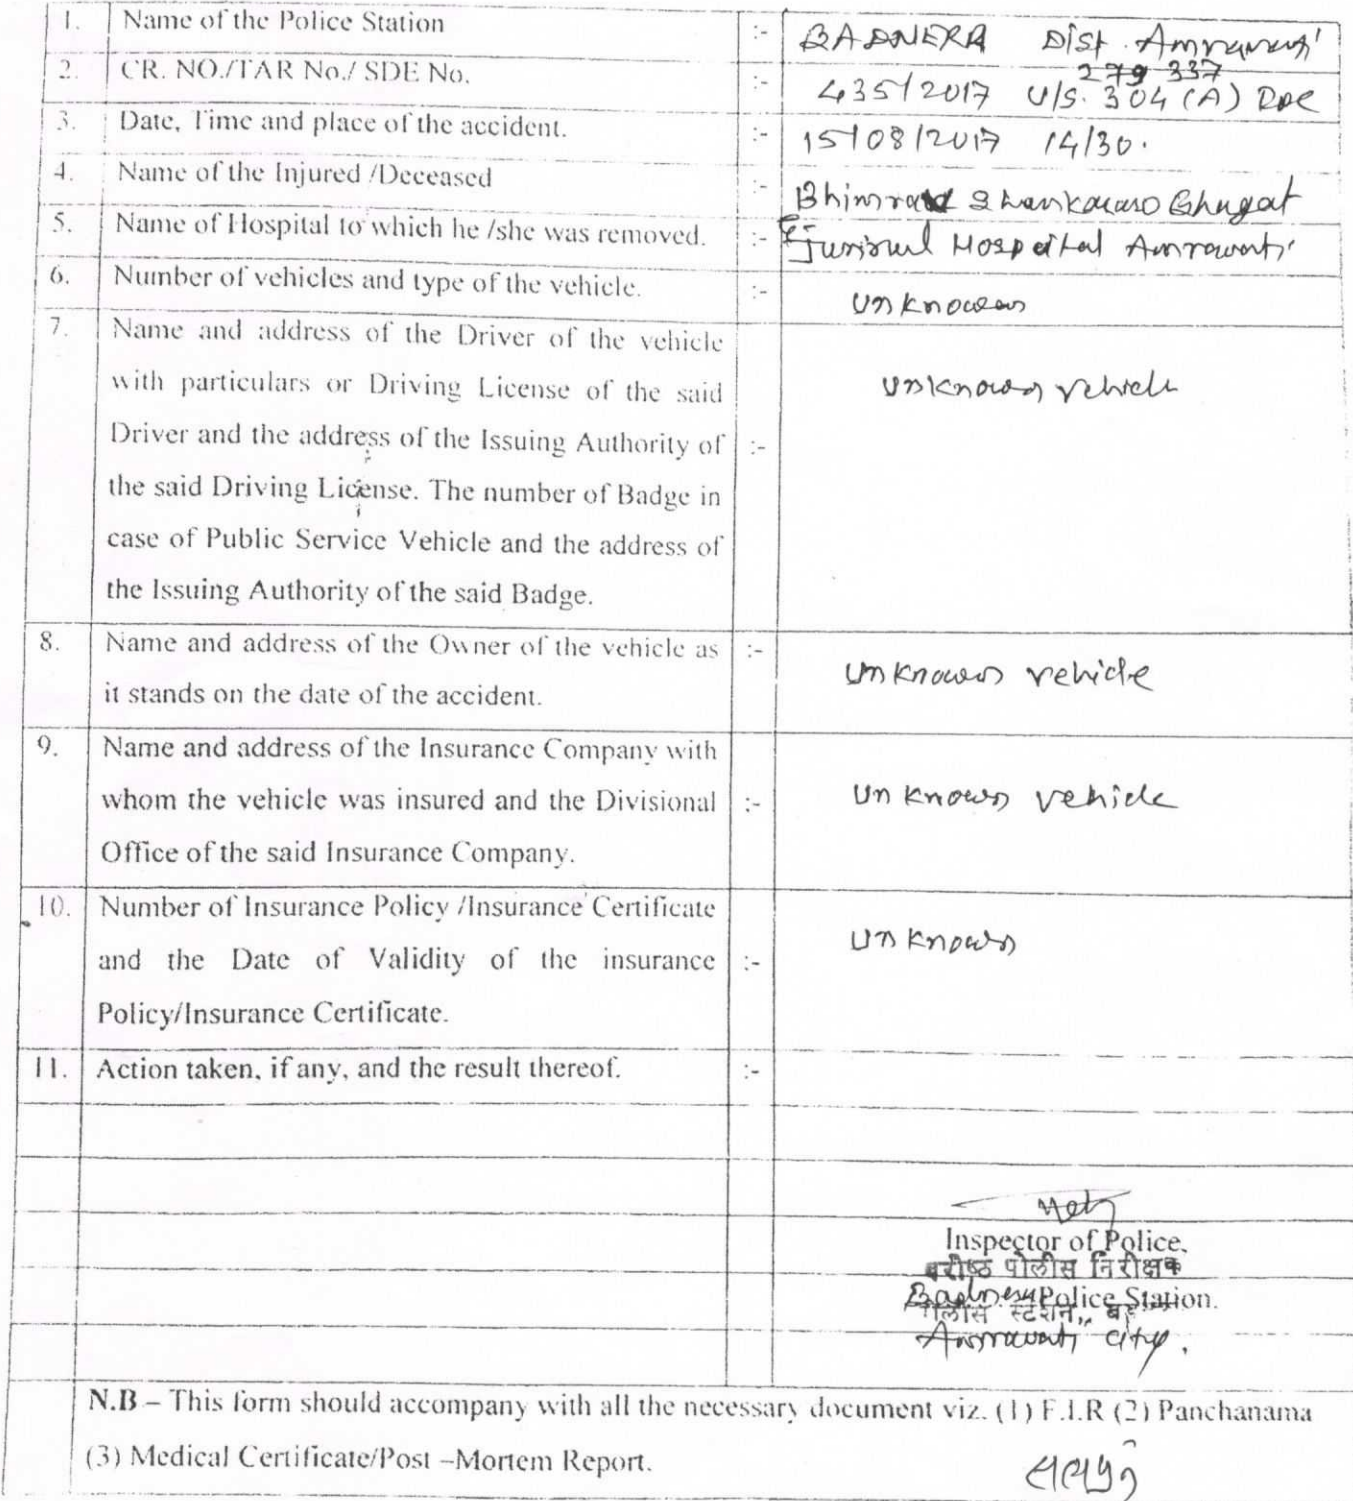 1. Name of the Police Station :- BADNERA Dist. Amravati
2. CR. NO./TAR No./ SDE No. :- 435/2017 U/S. 279 337 304 (A)
3. Date, Time and place of the accident. :- 15/08/2017 14/30.
4. Name of the Injured /Deceased :- Bhimrao Shankarrao Bhagat
5. Name of Hospital to which he /she was removed. :- Hospital Amravati
6. Number of vehicles and type of the vehicle. :- Unknown
7. Name and address of the Driver of the vehicle
with particulars or Driving License of the said
Unknown vehicle
Driver and the address of the Issuing Authority of :-
the said Driving License. The number of Badge in
case of Public Service Vehicle and the address of
the Issuing Authority of the said Badge.
8. Name and address of the Owner of the vehicle as :-
it stands on the date of the accident.
Unknown vehicle
9. Name and address of the Insurance Company with
whom the vehicle was insured and the Divisional :- Unknown vehicle
Office of the said Insurance Company.
10. Number of Insurance Policy /Insurance Certificate
and the Date of Validity of the insurance :- Unknown
Policy/Insurance Certificate.
11. Action taken, if any, and the result thereof. :-
Inspector of Police,
वरीष्ठ पोलीस निरीक्षक
Badnera Police Station.
पोलीस स्टेशन,
Amravati City.
N.B – This form should accompany with all the necessary document viz. (1) F.I.R (2) Panchanama
(3) Medical Certificate/Post –Mortem Report.